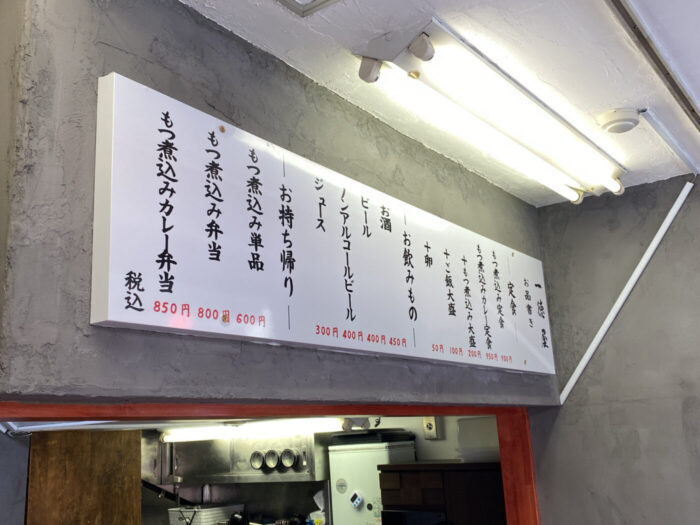 一徳
お品書き
― 定食 ―
もつ煮込み定食 900円
もつ煮込みカレー定食 950円
+もつ煮込み大盛 200円
+ご飯大盛 100円
+卵 50円
― お飲みもの ―
お酒 450円
ビール 400円
ノンアルコールビール 400円
ジュース 300円
― お持ち帰り ―
もつ煮込み単品 600円
もつ煮込み弁当 800円
もつ煮込みカレー弁当 850円
税込